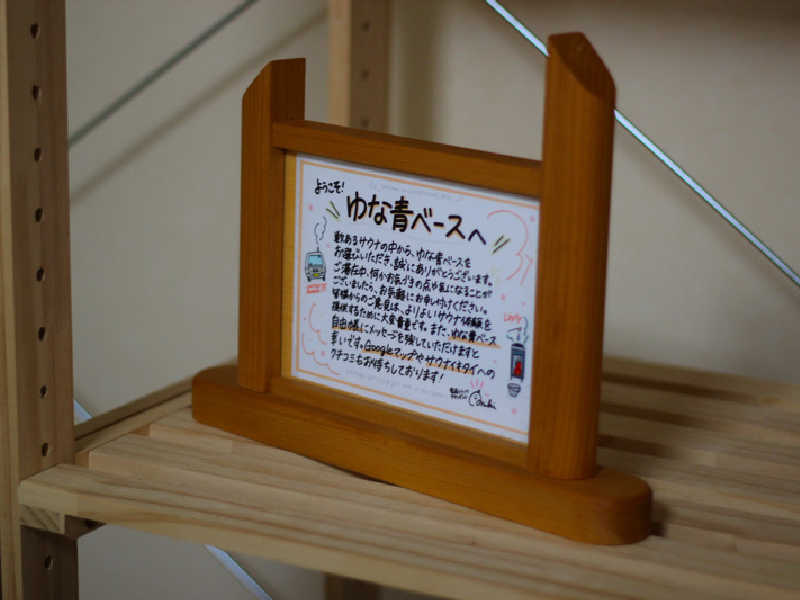 ようこそ!
ゆな青ベースへ
数あるサウナの中から、ゆな青ベースを
お選びいただき、誠にありがとうございます。
ご滞在中、何かお気づきの点や気になることが
ございましたら、お気軽にお申し付けください。
皆様からのご意見は、よりよいサウナ体験を
提供するために大変貴重です。また、ゆな青ベース
自由帳にメッセージを残していただけますと
幸いです。Googleマップやサウナイキタイへの
クチコミもお待ちしております!